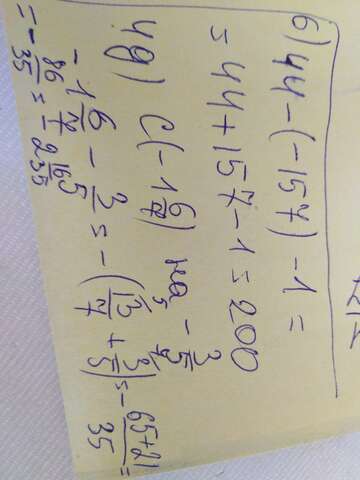 б) 44 - (-157) - 1 =
= 44 + 157 - 1 = 200
4g) c(-1 6/7) на - 3/5
-1 6/7 - 3/5 = -(13/7 + 3/5) = - 65+21/35 =
= - 86/35 = - 2 16/35